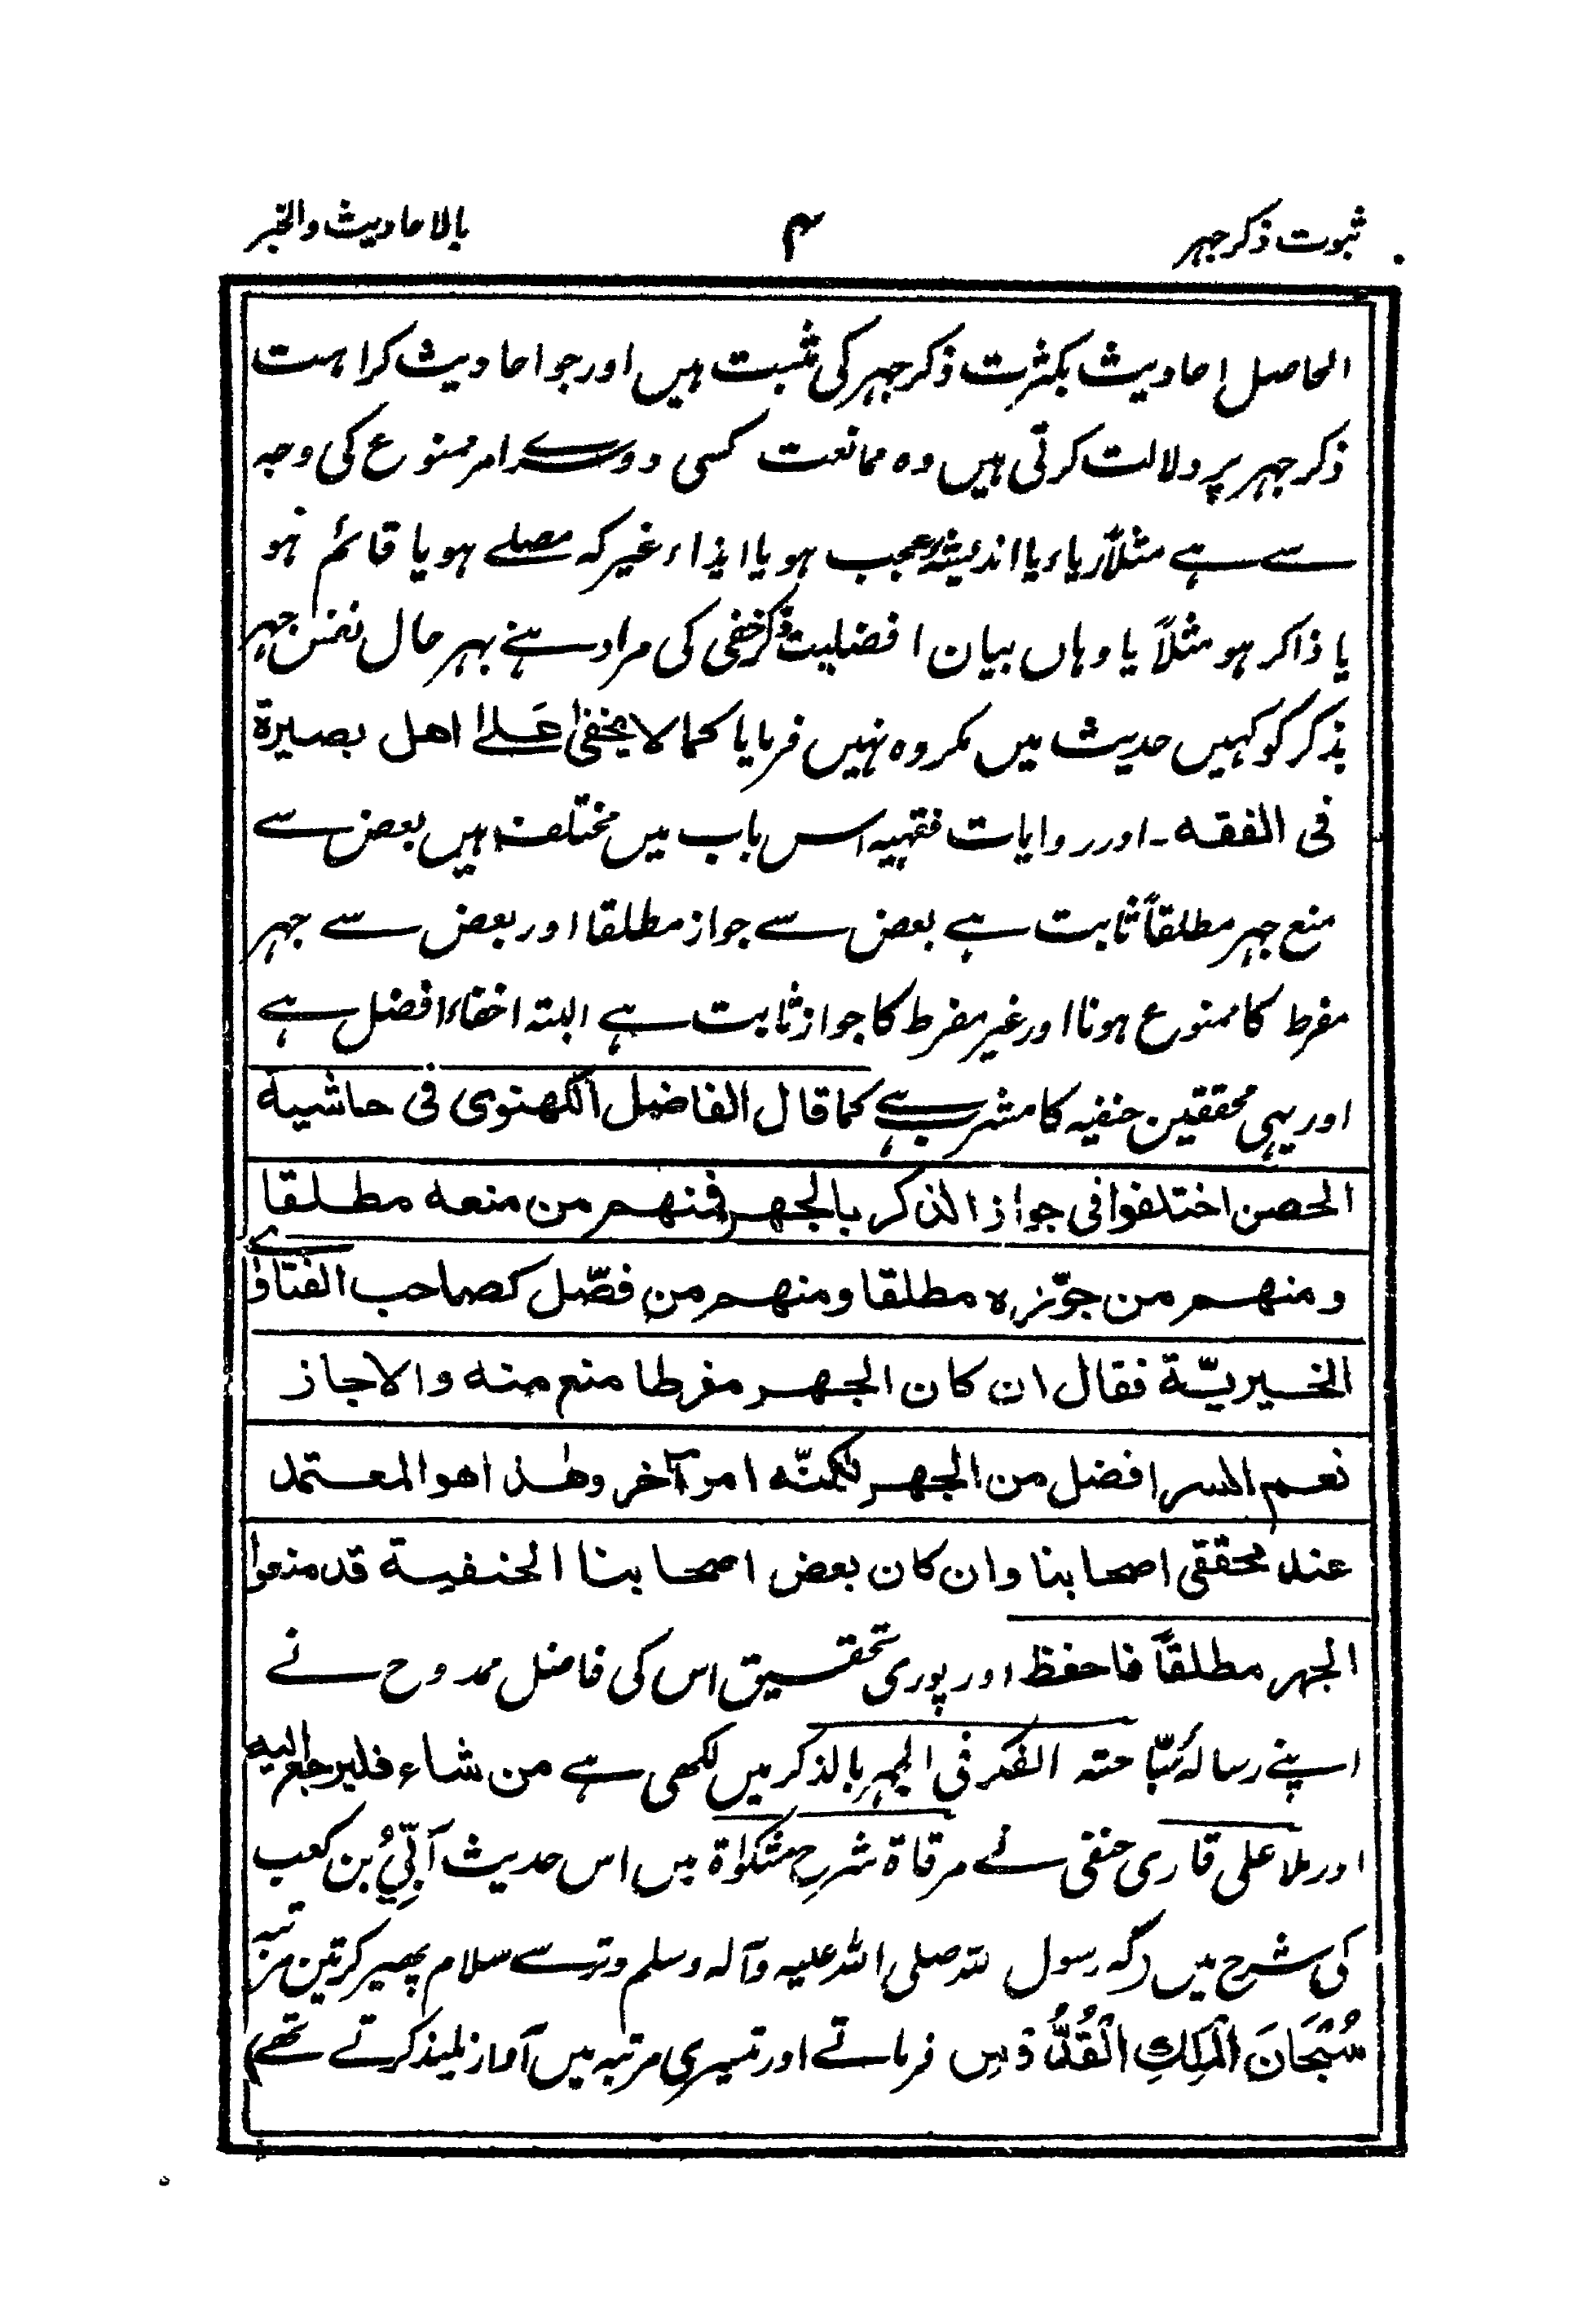 ثبوت ذکر جہر ۴ بالاحادیث والخبر
الحاصل احادیث بکثرت ذکر جہر کی مثبت ہیں اور جو احادیث کراہت
ذکر جہر پر دلالت کرتی ہیں وہ ممانعت کسی دوسرے امر ممنوع کی وجہ
سے ہے مثلاً ریاء یا اندیشہ عجب ہو یا ایذاء غیر کہ مصلے ہو یا قائم ہو
یا ذاکر ہو مثلاً یا وہاں بیان افضلیت ذکر خفی کی مراد ہے بہر حال نفس جہر
بذکر کو کہیں حدیث میں مکروہ نہیں فرمایا کما لا یخفی علی اهل بصیرة
فی الفقه۔ اور روایات فقہیہ اس باب میں مختلف ہیں بعض سے
منع جہر مطلقاً ثابت ہے بعض سے جواز مطلقا اور بعض سے جہر
مفرط کا ممنوع ہونا اور غیر مفرط کا جواز ثابت ہے البتہ اخفاء افضل ہے
اور یہی محققین حنفیہ کا مشرب ہے کما قال الفاضل الکهنوی فی حاشیة
الحصن اختلفوا فی جواز الذکر بالجهر فمنهم من منعه مطلقا
ومنهم من جوّزہ مطلقا ومنهم من فصّل کصاحب الفتاوٰے
الخیریّة فقال ان کان الجهر مفرطا منع منه والا جاز
نعم السر افضل من الجهر لکنّه امر آخر وهٰذا هو المعتمد
عند محققی اصحابنا وان کان بعض اصحابنا الحنفیة قد منعوا
الجهر مطلقاً فاحفظ اور پوری تحقیق اس کی فاضل ممدوح نے
اپنے رسالہ سَبّاحتہ الفکر فی الجہرِ بالذکر میں لکھی ہے من شاء فلیرجع الیه
اور ملا علی قاری حنفی نے مرقاة شرح مشکوٰة میں اس حدیث اُبَیِّ بن کعب
کی شرح میں (کہ رسول للہ صلی اللہ علیہ وآلہ وسلم وتر سے سلام پھیر کر تین مرتبہ
سُبْحَانَ الْمَلِكِ الْقُدُّوْسِ فرماتے اور تیسری مرتبہ میں آواز بلند کرتے تھے)